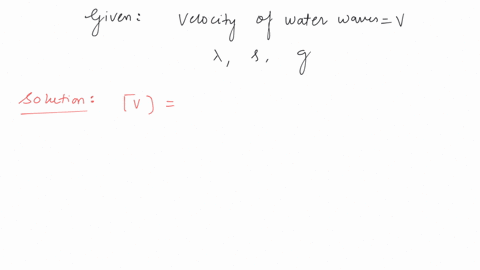 Given: Velocity of water waves = V
λ, s, g
Solution: [V] =